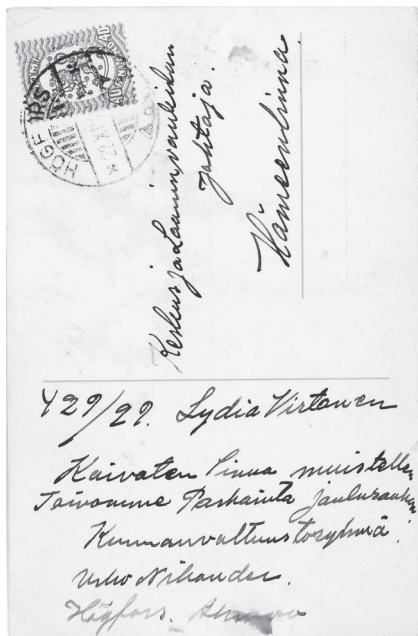 HÖGFORS
40
40
Keskus ja Lääninvankilan
Johtaja.
Hämeenlinna.
429/29. Lydia Virtanen
Kaivaten Sinua muistellen
Toivomme Parhainta joulurauhaa
Kunnanvaltuustoryhmä.
Urho Nikander.
Högfors.